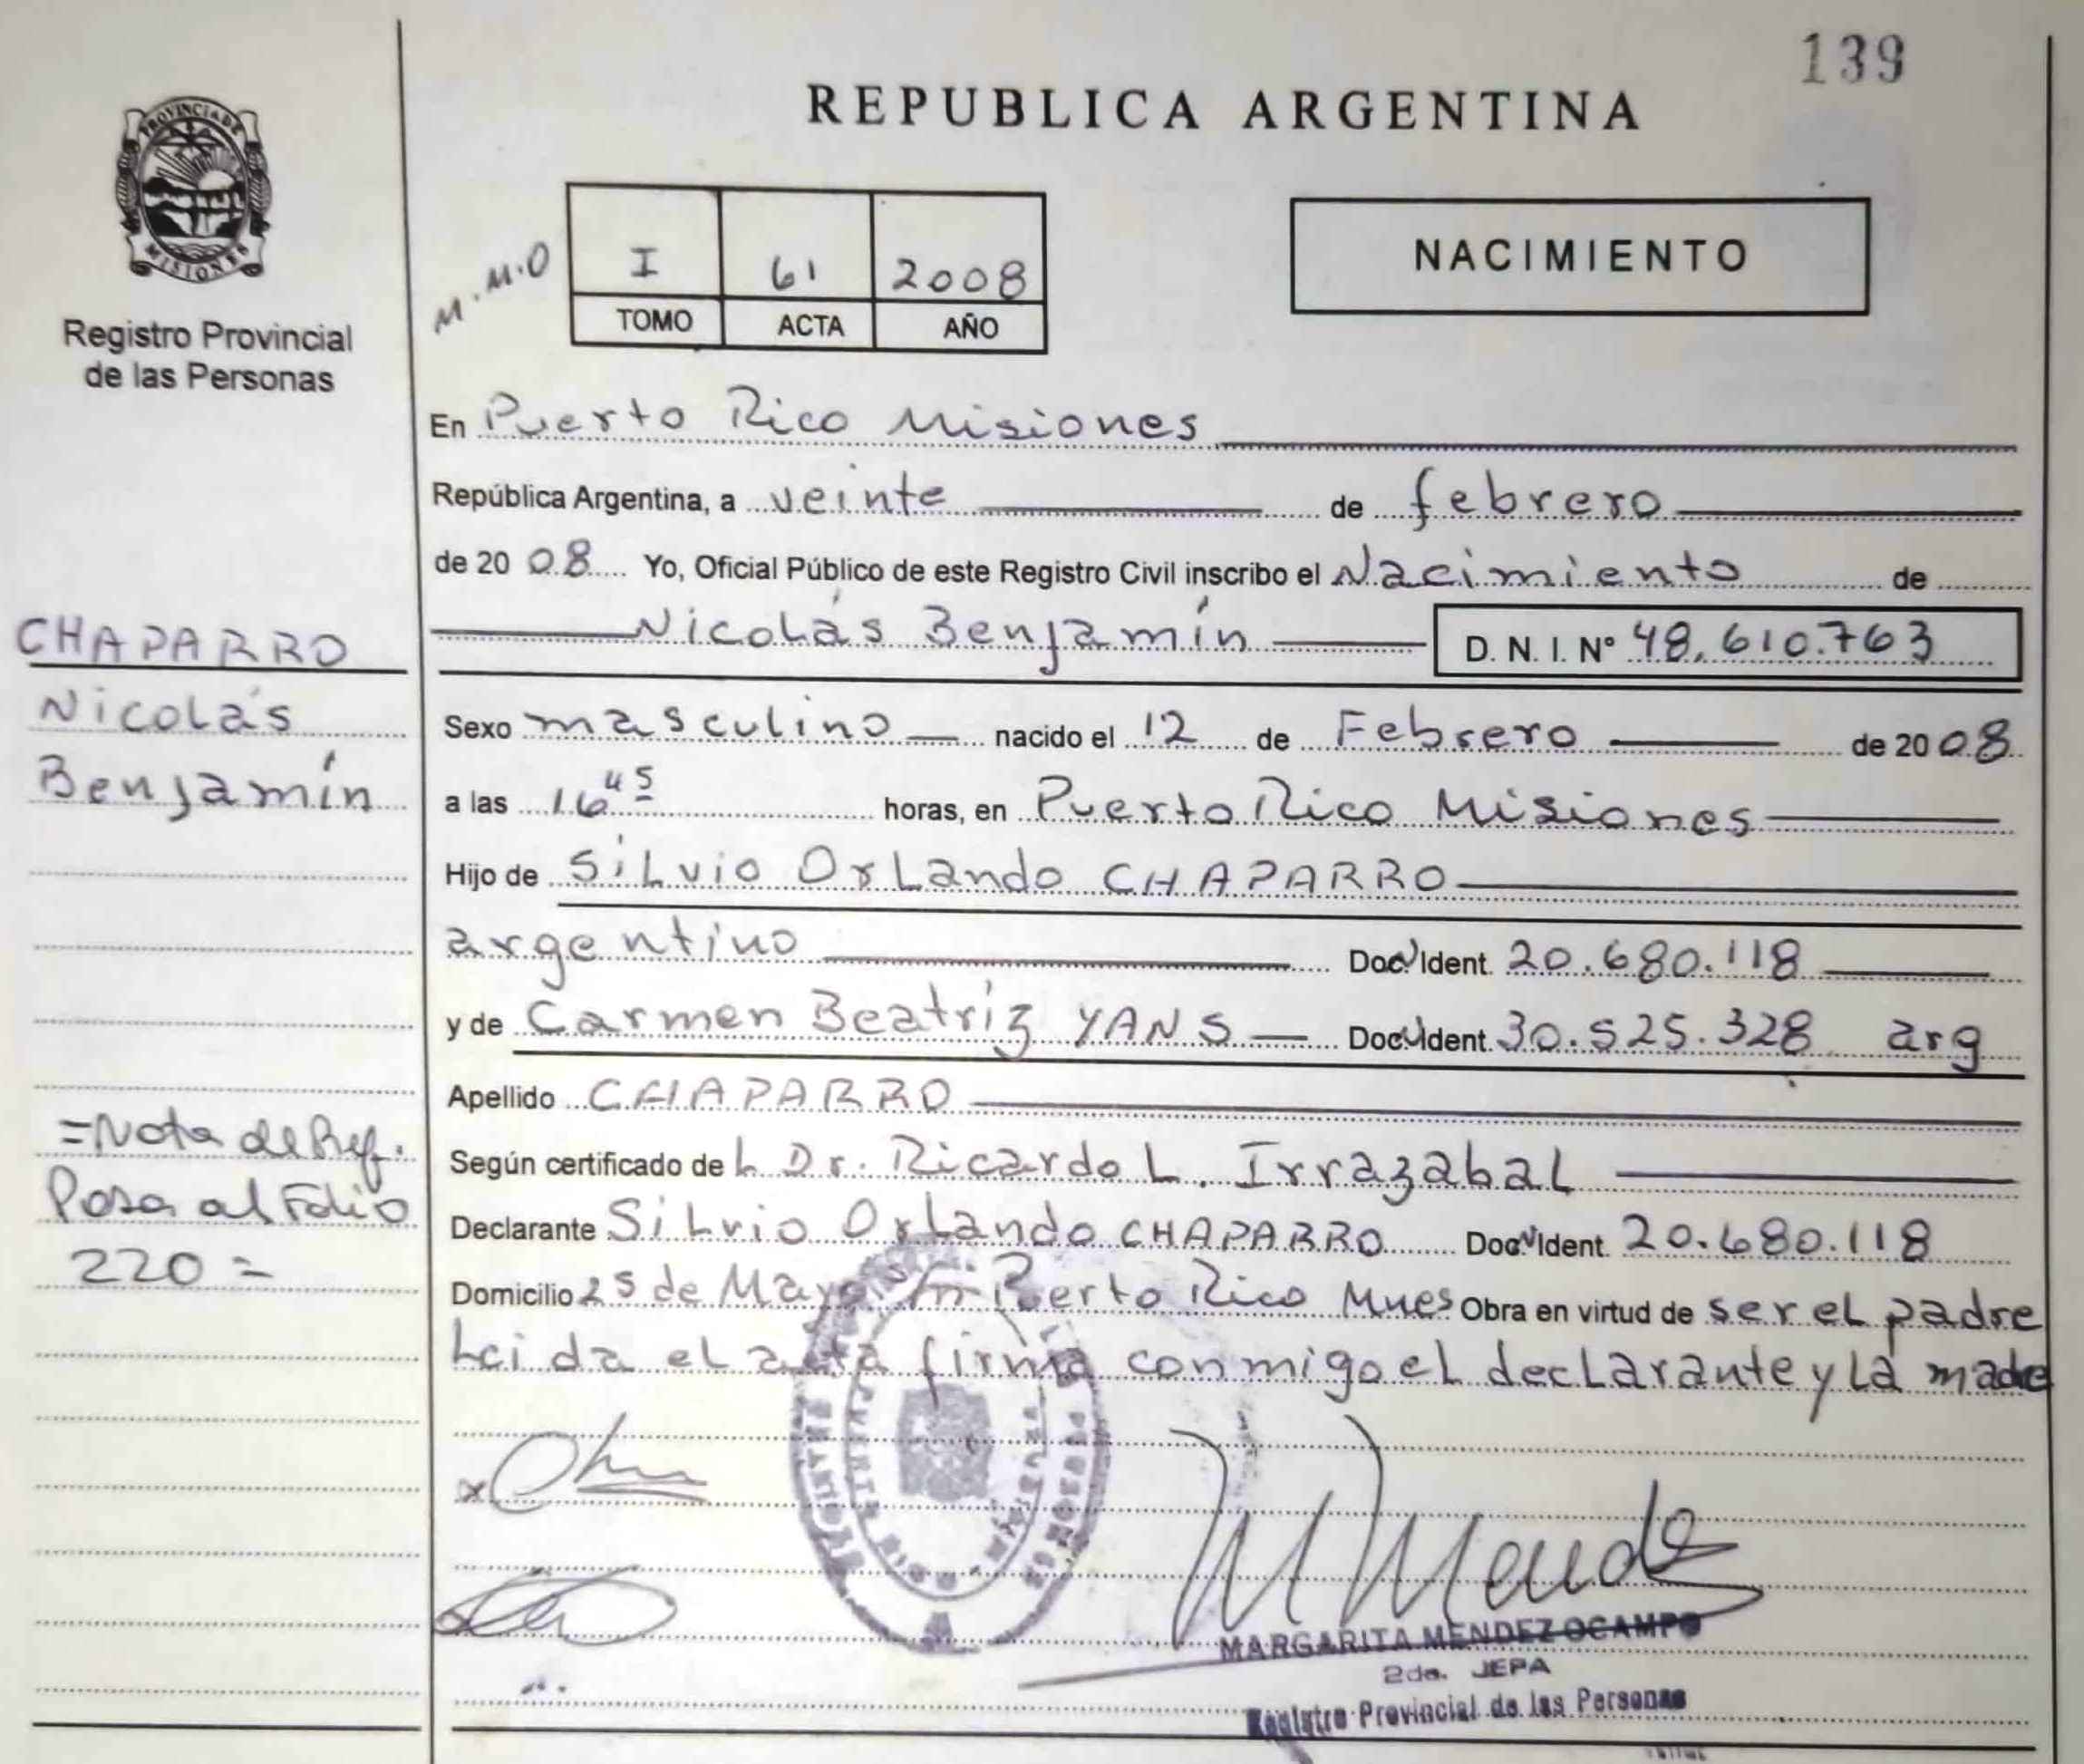 139
REPUBLICA ARGENTINA
PROVINCIA DE
MISIONES
Registro Provincial
de las Personas
M.M.O
I 61 2008
TOMO ACTA AÑO
NACIMIENTO
En Puerto Rico Misiones
República Argentina, a veinte de febrero
de 2008 Yo, Oficial Público de este Registro Civil inscribo el Nacimiento de
Nicolás Benjamín D. N. I. Nº 48.610.763
CHAPARRO
Nicolás
Benjamín
Sexo masculino nacido el 12 de Febrero de 2008
a las 16 45 horas, en Puerto Rico Misiones
Hijo de Silvio Orlando CHAPARRO
argentino Doc. Ident. 20.680.118
y de Carmen Beatriz YANS Doc. Ident. 30.525.328 arg
Apellido CHAPARRO
=Nota de Ref.
Pasa al Folio
220=
Según certificado de L Dr. Ricardo L. Irrazabal
Declarante Silvio Orlando CHAPARRO Doc. Ident. 20.680.118
Domicilio 25 de Mayo Puerto Rico Mnes Obra en virtud de ser el padre
Leida el acta firma conmigo el declarante y la madre
MARGARITA MENDEZ OCAMPO
2da. JEFA
Registro Provincial de las Personas